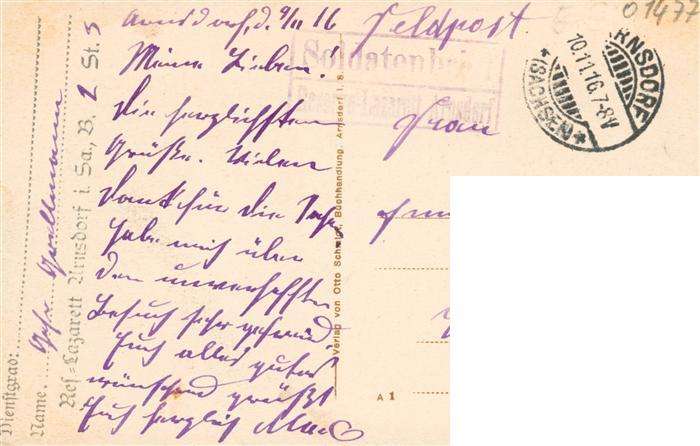 Arnsdorf, d. 9/11 16
Meine Lieben.
Die herzlichsten
Grüße. Vielen
Dank für die
habe mich über
den unverhofften
Besuch sehr gefreut.
Euch alles gute
wünschend grüßt
Euch herzlich
Feldpost
Frau
01472
Soldatenbrief
Reserve-Lazarett Arnsdorf
ARNSDORF
10.11.16.7-8V
*(SACHSEN)*
Dienstgrad:
Name.
Res-Lazarett Arnsdorf i. Sa., B. 2 St. 5
Verlag von Otto Schmidt, Buchhandlung, Arnsdorf i. S.
A 1